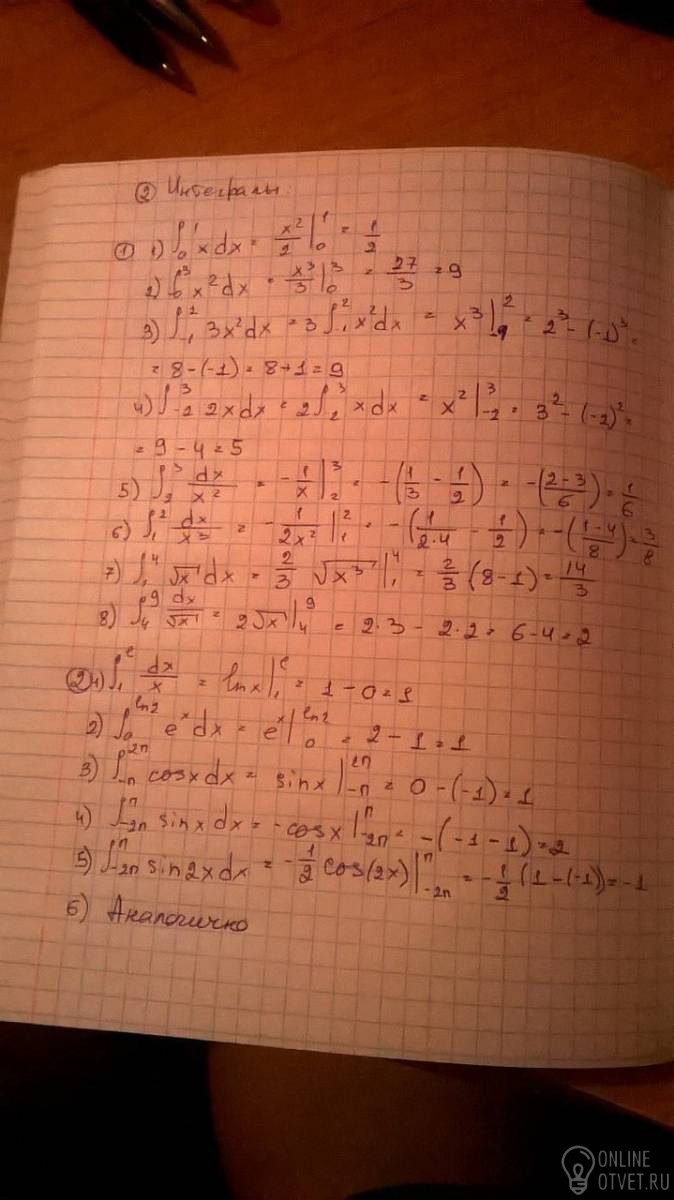 ② Интегралы
① 1) ∫₀¹ xdx = x²/2 |₀¹ = 1/2
2) ∫₀³ x²dx = x³/3 |₀³ = 27/3 = 9
3) ∫₋₁² 3x²dx = 3∫₋₁² x²dx = x³ |₋₁² = 2³ - (-1)³ =
= 8 - (-1) = 8 + 1 = 9
4) ∫₋₂³ 2xdx = 2∫₋₂³ xdx = x² |₋₂³ = 3² - (-2)² =
= 9 - 4 = 5
5) ∫₂³ dx/x² = -1/x |₂³ = -(1/3 - 1/2) = -((2-3)/6) = 1/6
6) ∫₁² dx/x³ = -1/(2x²) |₁² = -(1/(2·4) - 1/2) = -((1-4)/8) = 3/8
7) ∫₁⁴ √x dx = 2/3 √x³ |₁⁴ = 2/3 (8-1) = 14/3
8) ∫₄⁹ dx/√x = 2√x |₄⁹ = 2·3 - 2·2 = 6-4 = 2
② 1) ∫₁ᵉ dx/x = lnx |₁ᵉ = 1 - 0 = 1
2) ∫₀^ln2 eˣdx = eˣ |₀^ln2 = 2 - 1 = 1
3) ∫₋п^2п cosxdx = sinx |₋п^2п = 0 - (-1) = 1
4) ∫₋₂п^п sinxdx = -cosx |₋₂п^п = -(-1-1) = 2
5) ∫₋₂п^п sin2xdx = -1/2 cos(2x) |₋₂п^п = -1/2 (1-(-1)) = -1
6) Аналогично
ONLINE
OTVET.RU